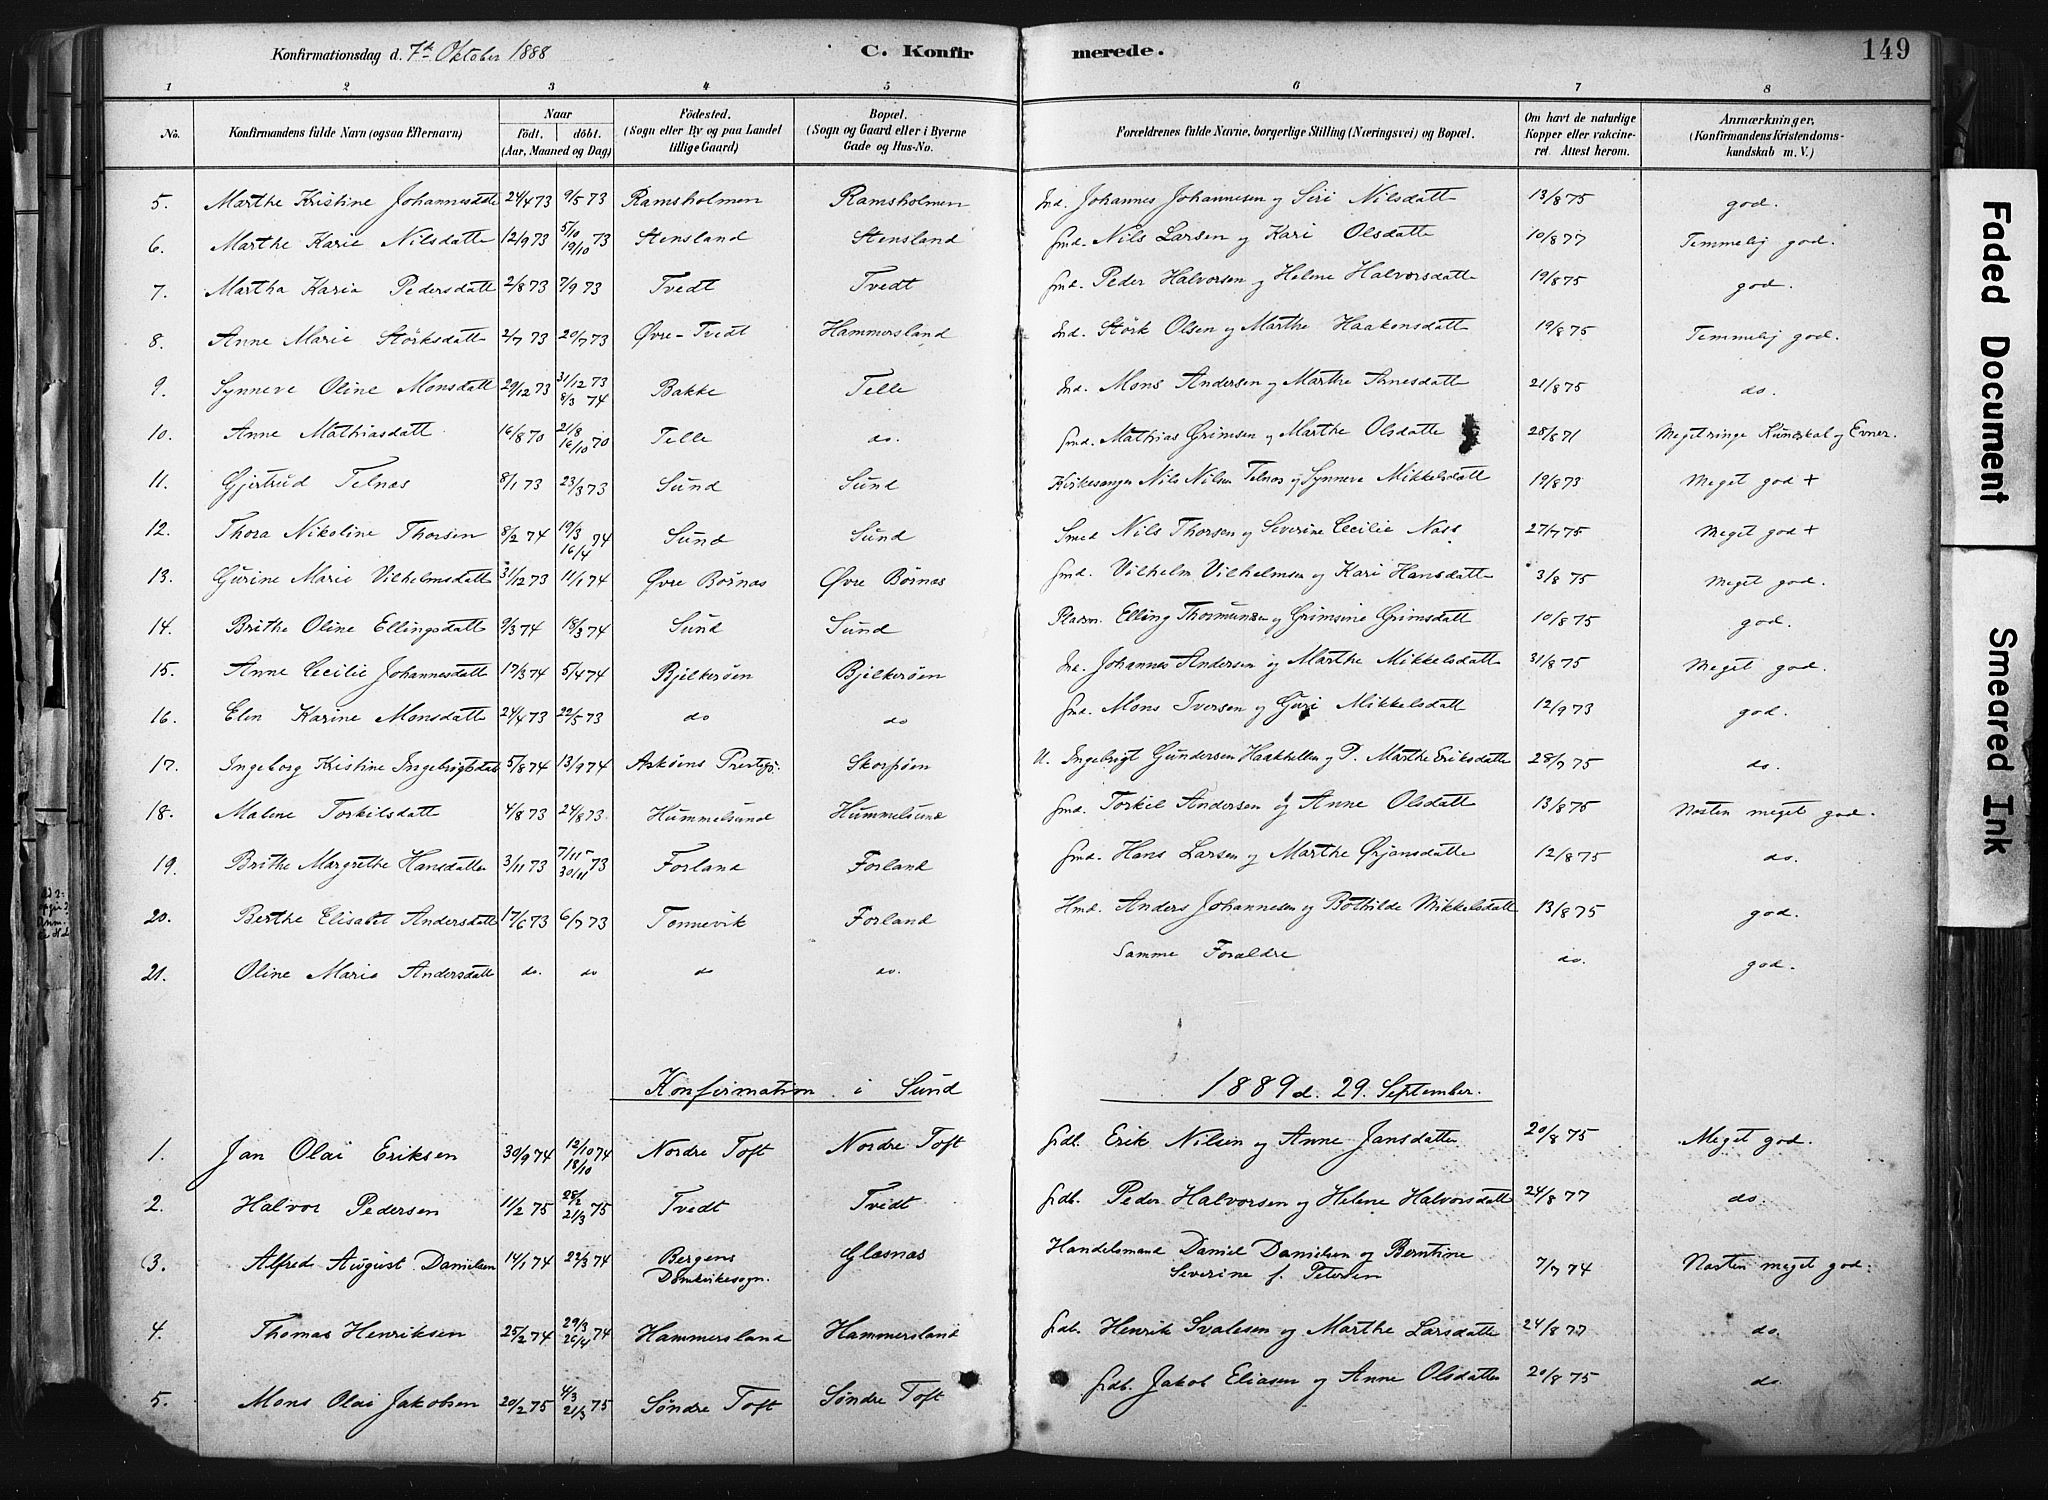 Konfirmationsdag d. 7de Oktober 1888 C. Konfirmerede. 149
1 2 3 4 5 6 7 8
No. Konfirmandens fulde Navn (ogsaa Efternavn) Naar födt. döbt. (Aar, Maaned og Dag) Födested. (Sogn eller By og paa Landet tillige Gaard) Bopæl. (Sogn og Gaard eller i Byerne Gade og Hus-No. Forældrenes fulde Navne, borgerlige Stilling (Næringsvei) og Bopæl. Om havt de naturlige Kopper eller vakcineret. Attest herom. Anmærkninger. (Konfirmandens Kristendomskundskab m. V.)
5. Marthe Kristine Johannesdatt 24/4 73 9/5 73 Ramsholmen Ramsholmen Ind. Johannes Johannesen og Siri Nilsdatt 13/8 75 god.
6. Marthe Karie Nilsdatte 12/9 73 5/10 19/10 73 Stensland Stensland Gmd. Nils Larsen og Kari Olsdatte 10/8 77 Temmelig god.
7. Martha Karia Pedersdatt 2/8 73 7/9 73 Tvedt Tvedt Gmd. Peder Halvorsen og Helene Halvorsdatte 19/8 75 god.
8. Anne Marie Störksdatte 2/7 73 20/7 73 Øvre-Tvedt Hammersland Ind. Störk Olsen og Marthe Haakensdatte 19/8 75 Temmelig god.
9. Synneve Oline Monsdatt 29/12 73 31/12 73 8/3 74 Bakke Telle Ind. Mons Andersen og Marthe Arnesdatte 21/8 75 do.
10. Anne Mathiasdatt 16/8 70 21/8 16/10 70 Telle do. Gmd. Mathias Grimsen og Marthe Olsdatte 28/8 71 Meget ringe Kundskab og Evner.
11. Gjertrud Telnæs 8/1 73 23/3 73 Sund Sund Kirkesanger Nils Nilsen Telnæs og Synneve Mikkelsdatt 19/8 73 Meget god +
12. Thora Nikoline Thorsen 8/2 74 19/3 16/4 74 Sund Sund Smed Nils Thorsen og Severine Cecilie Nass 27/7 75 Meget god +
13. Gurine Marie Vilhelmsdatte 31/12 73 11/1 74 Øvre Börnæs Øvre Börnæs Gmd. Vilhelm Vilhelmsen og Kari Hansdatte 3/8 75 Meget god.
14. Brithe Oline Ellingsdatt 9/3 74 18/3 74 Sund Sund Pladsm. Elling Thormunsen og Grimsine Grimsdatt 10/8 75 god.
15. Anne Cecilie Johannesdatt 17/3 74 5/4 74 Bjelkeröen Bjelkeröen Ind. Johannes Andersen og Marthe Mikkelsdatt 31/8 75 Meget god.
16. Elen Karine Monsdatte 24/4 73 22/5 73 do do Gmd. Mons Iversen og Guri Mikkelsdatt 12/9 73 god.
17. Ingeborg Kristine Ingebrigtsdatt 5/8 74 13/9 74 Asköens Prestegj. Skorpöen U. Ingebrigt Gundersen Haakhellen og P. Marthe Eriksdatte 28/7 75 do.
18. Malene Torkilsdatt 4/8 73 24/8 73 Hummelsund Hummelsund Gmd. Torkel Andersen og Anne Olsdatt 13/8 75 Næsten meget god.
19. Brithe Margrethe Hansdatter 3/11 73 7/11 30/11 73 Forland Forland Gmd. Hans Larsen og Marthe Ørjansdatte 12/8 75 do.
20. Berthe Elisabet Andersdatt 17/6 73 6/7 73 Tonnevik Forland Hmd. Anders Johannesen og Bothilde Mikkelsdatt 13/8 75 god.
21. Oline Maria Andersdatt do. do do do. Samme Forældre do. god.
Konfirmation i Sund 1889 d. 29. September.
1. Jan Olai Eriksen 30/9 74 12/10 18/10 74 Nordre Toft Nordre Toft Grdb. Erik Nilsen og Anne Jansdatter 20/8 75 Meget god.
2. Halvor Pedersen 11/2 75 28/2 21/3 75 Tvedt Tvedt Grdb. Peder Halvorsen og Helene Halvorsdatt 24/8 77 do.
3. Alfred August Danielsen 14/1 74 22/3 74 Bergens Domkirkesogn. Glæsnæs Handelsmand Daniel Danielsen og Berntine Severine f. Petersen 7/7 74 Næsten meget god.
4. Thomas Henriksen 25/2 74 29/3 26/4 74 Hammersland Hammersland Grdb. Henrik Svalesen og Marthe Larsdatte 24/8 77 do.
5. Mons Olai Jakobsen 20/2 75 4/3 21/3 75 Söndre Toft Söndre Toft Grdb. Jakob Eliasen og Anne Olsdatter 20/8 75 do.
Faded Document
Smeared Ink